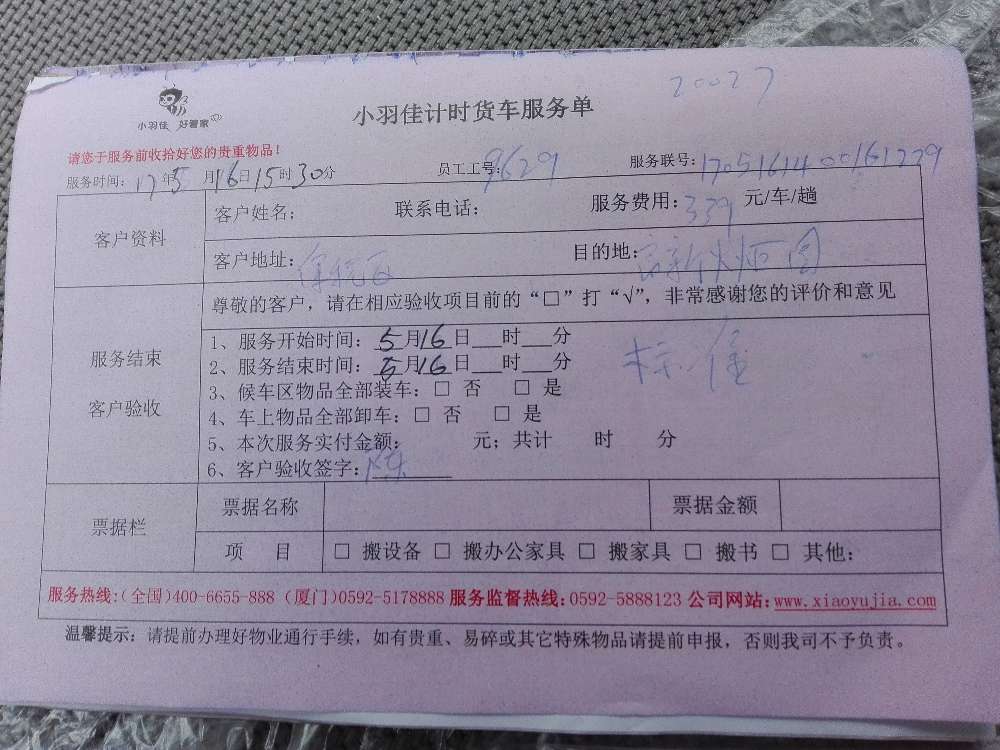 20027
小羽佳 好管家
小羽佳计时货车服务单
请您于服务前收拾好您的贵重物品！
服务时间：17年5月16日15时30分 员工工号：9629 服务联号：1705161400161239
客户资料
客户姓名： 联系电话： 服务费用：339 元/车/趟
客户地址：保税区 目的地：
尊敬的客户，请在相应验收项目前的“□”打“√”，非常感谢您的评价和意见
服务结束
客户验收
1、服务开始时间：5月16日___时___分
2、服务结束时间：5月16日___时___分
3、候车区物品全部装车：□ 否 □ 是
4、车上物品全部卸车：□ 否 □ 是
5、本次服务实付金额： 元；共计 时 分
6、客户验收签字：陈
票据栏
票据名称 票据金额
项 目 □ 搬设备 □ 搬办公家具 □ 搬家具 □ 搬书 □ 其他：
服务热线：（全国）400-6655-888（厦门）0592-5178888 服务监督热线：0592-5888123 公司网站：www.xiaoyujia.com
温馨提示：请提前办理好物业通行手续，如有贵重、易碎或其它特殊物品请提前申报，否则我司不予负责。